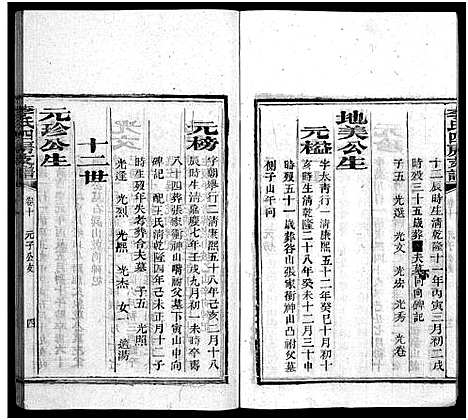 李氏四房支譜
十二辰時生清乾隆十一年丙寅三月初二戌
時歿三十五歲葬夫墓同向碑記
子五 光斌 光文 光宏 光秀 光卷
地美公生
元楹
字太青行一清康熙五十二年癸巳十月初八
亥時生清乾隆二十八年癸未十二月三十申
時歿五十一歲葬谷山張家衝神山凸祔父墓
側子山午向
元榜
字朝舉行二清康熙五十八年己亥二月十八
辰時生清嘉慶七年壬戌九月初一未時卒壽
八十四葬張家衝神山嘴磡父墓下寅山申向
碑記 配王氏清乾隆四年己未正月十二子
時生歿年失考葬合夫墓 子五 光照
光逢 光烈 光熊 光杰 女一 適湯
十二世
元珍公生
李氏四房支譜
卷十 元子公支
四